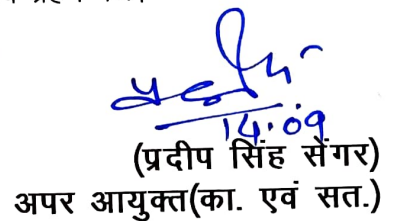 14.09
(प्रदीप सिंह सेंगर)
अपर आयुक्त(का. एवं सत.)